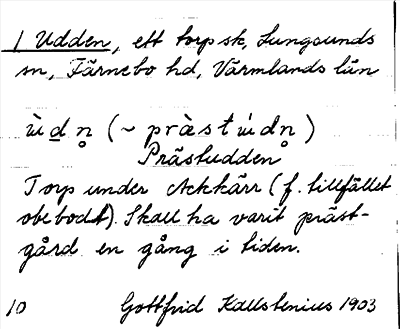 1 Udden, ett torpsk, Lungsunds
sn, Färnebo hd, Värmlands län
ù̀dn̥ (~ pràstẃdn̥)
Prästudden
Torp under Ackkärr (f. tillfället
obebodt). Skall ha varit präst-
gård en gång i tiden.
10 Gottfrid Kallstenius 1903